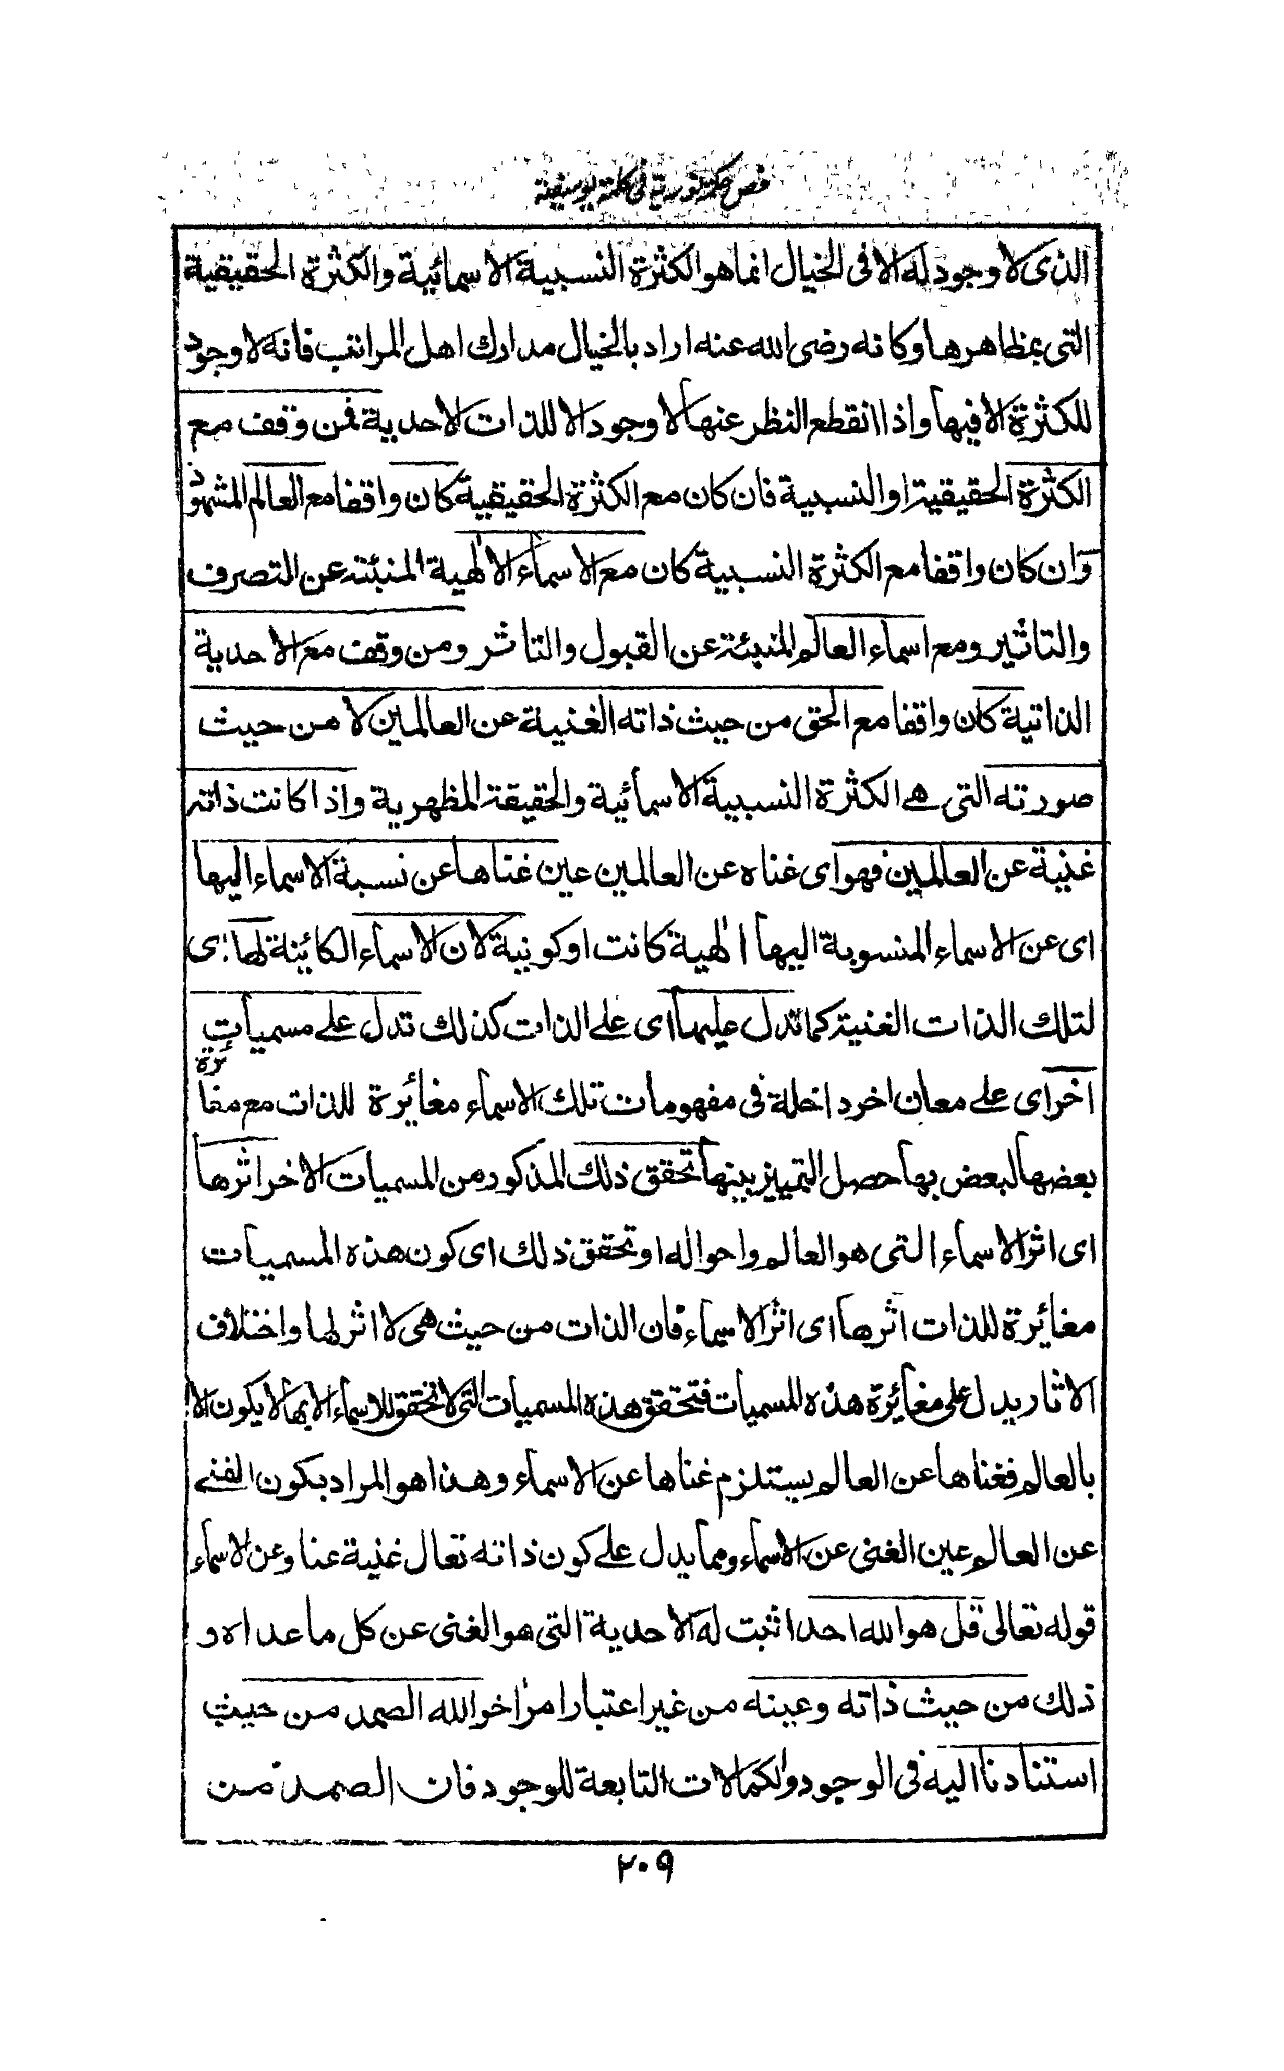 فص حكمة نورية فى كلمة يوسفية
الذى لا وجود له الا فى الخيال انما هو الكثرة النسبية الاسمائية والكثرة الحقيقية
التى بمظاهرها وكانه رضى الله عنه اراد بالخيال مدارك اهل المراتب فانه لا وجود
للكثرة الا فيها واذا انقطع النظر عنها لا وجود الا للذات الاحدية فمن وقف مع
الكثرة الحقيقية او النسبية فان كان مع الكثرة الحقيقية كان واقفا مع العالم المشهود
وان كان واقفا مع الكثرة النسبية كان مع الاسماء الالهية المنبئة عن التصرف
والتاثير ومع اسماء العالم المنبئة عن القبول والتاثر ومن وقف مع الاحدية
الذاتية كان واقفا مع الحق من حيث ذاته الغنية عن العالمين لا من حيث
صورته التى هے الكثرة النسبية الاسمائية والحقيقة المظهرية واذا كانت ذاته
غنية عن العالمين فهو اى غناه عن العالمين عين غناها عن نسبة الاسماء اليها
اى عن الاسماء المنسوبة اليها الهية كانت او كونية لان الاسماء الكائنة لها اى
لتلك الذات الغنية كما تدل عليها اى علے الذات كذلك تدل علے مسميات
اخر اى علے معان اخر داخلة فى مفهومات تلك الاسماء مغائرة للذات مع مغائرة
بعضها لبعض بها حصل التمييز بينها تحقق ذلك المذكور من المسميات الاخر اثرها
اى اثر الاسماء التى هو العالم واحواله او تحقق ذلك اى كون هذه المسميات
مغائرة للذات اثرها اى اثر الاسماء فان الذات من حيث هى لا اثر لها واختلاف
الاثار يدل على مغائرة هذه المسميات فتحقق هذه المسميات التى لا تحقق للاسماء الا بها لا يكون الا
بالعالم فغناها عن العالم يستلزم غناها عن الاسماء وهذا هو المراد بكون الغنے
عن العالم عين الغنى عن الاسماء ومما يدل علے كون ذاته تعال غنية عنا وعن الاسماء
قوله تعالى قل هو الله احد اثبت له الاحدية التى هو الغنى عن كل ما عداه و
ذلك من حيث ذاته وعينه من غير اعتبار امر اخر الله الصمد من حيث
استنادنا اليه فى الوجود والكمالات التابعة للوجود فان الصمد من
٢٠٩